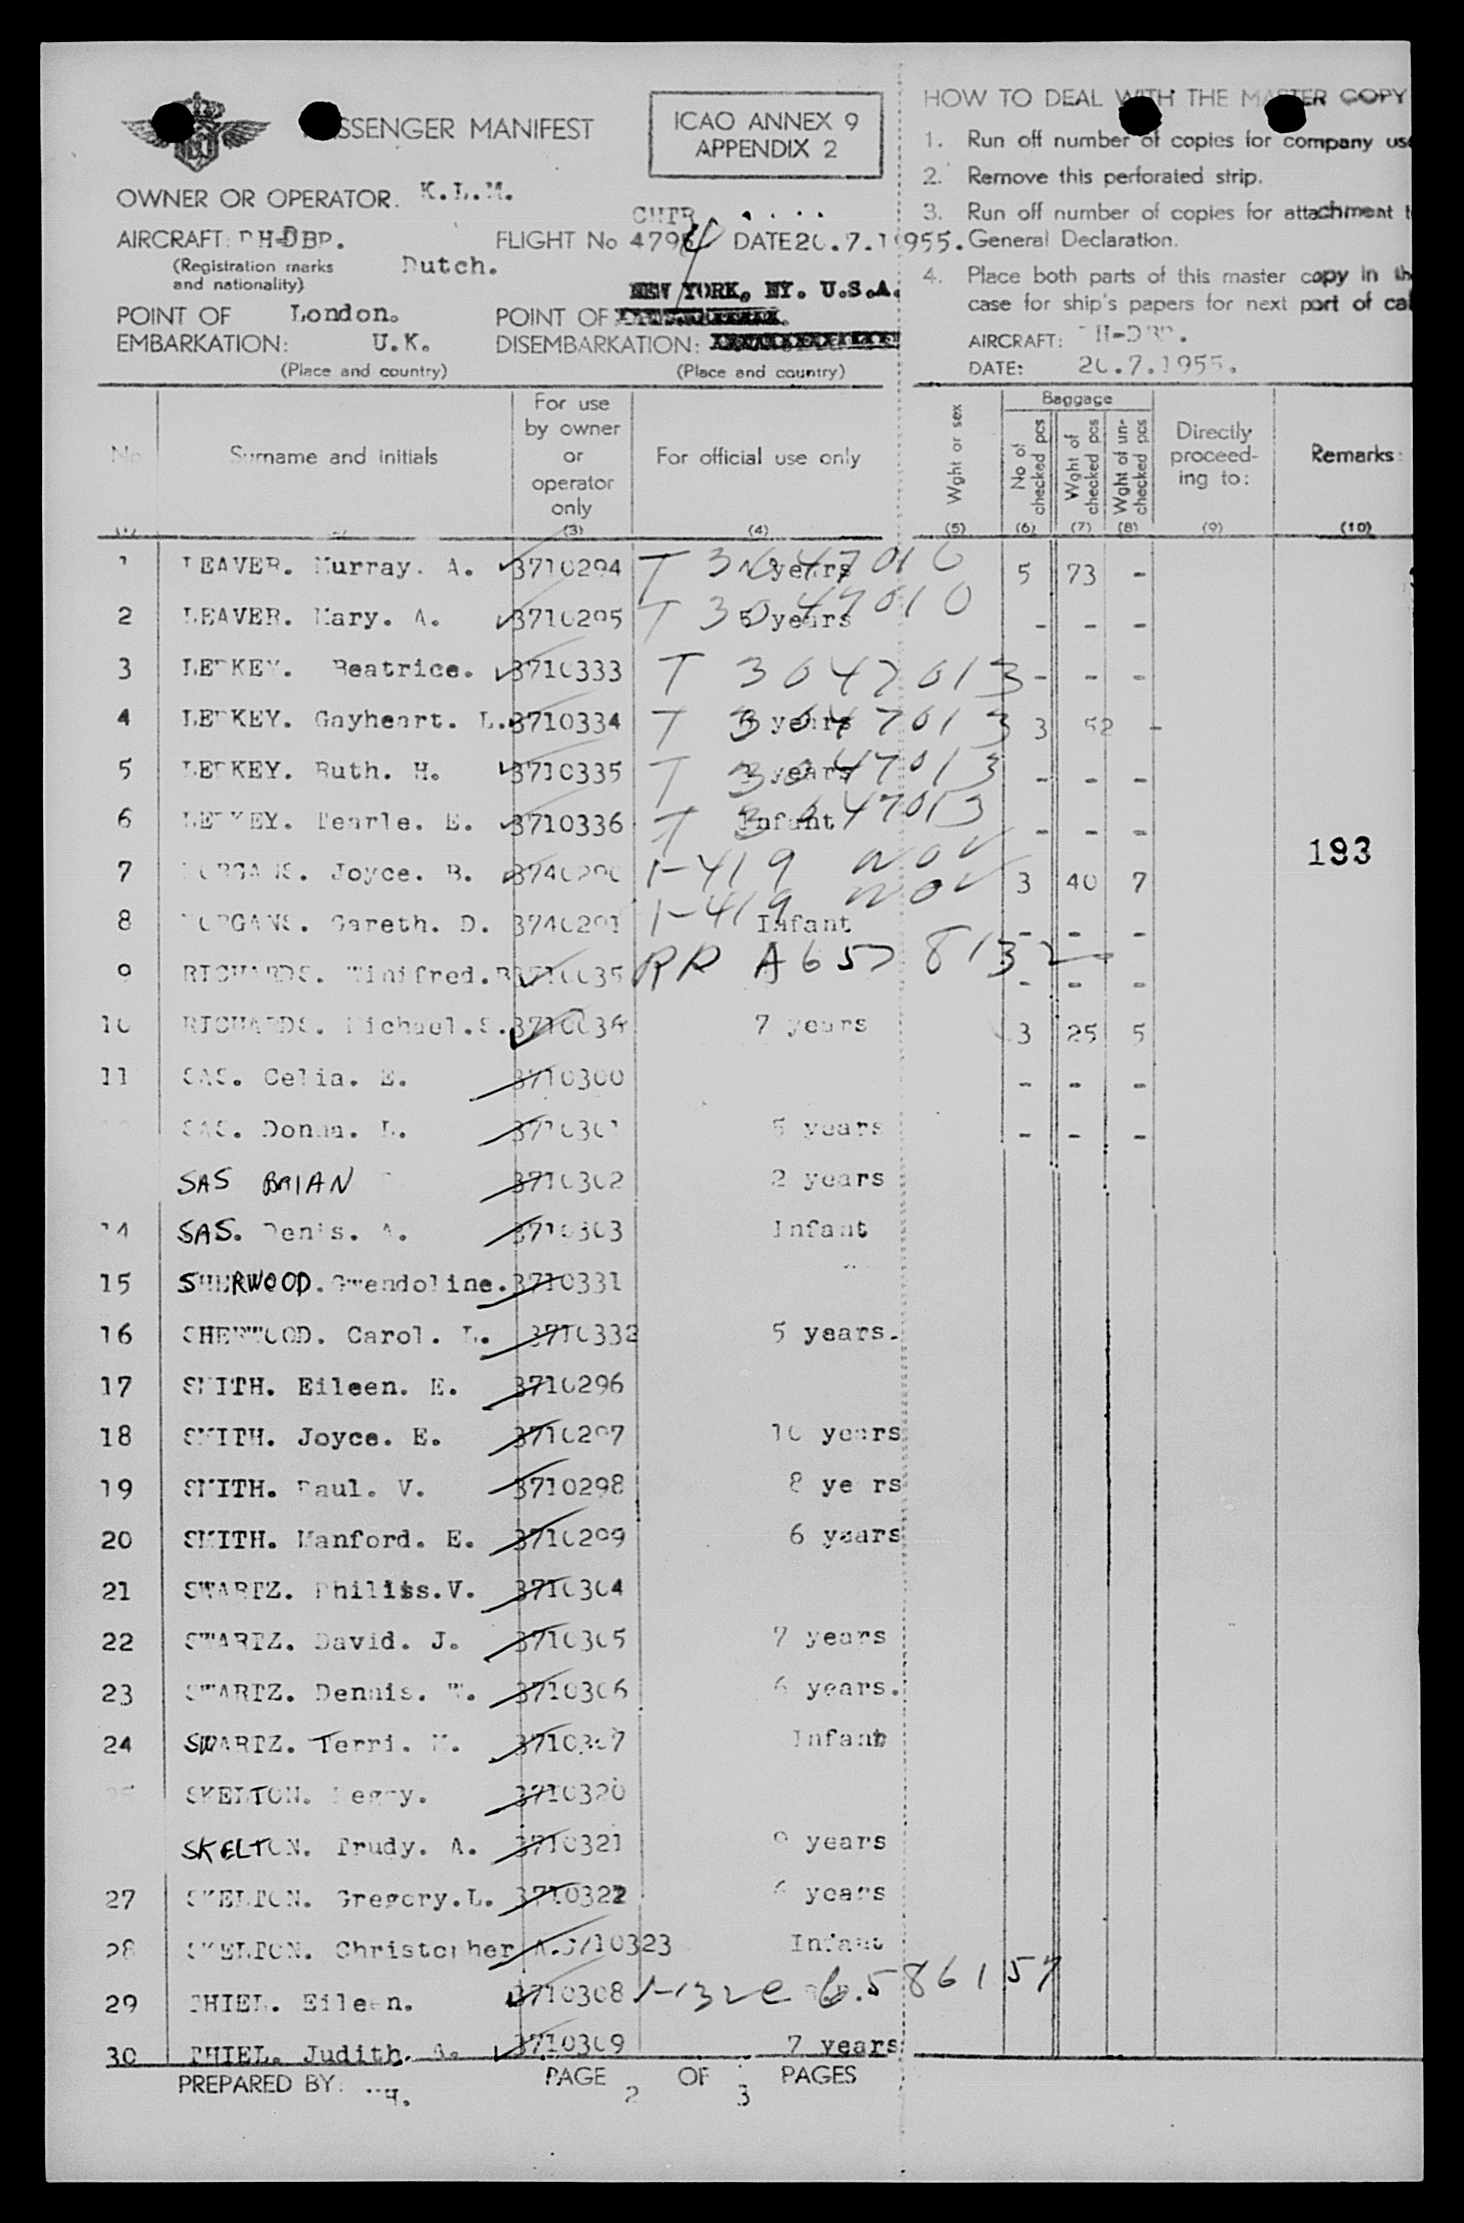 PASSENGER MANIFEST
ICAO ANNEX 9
APPENDIX 2
OWNER OR OPERATOR. K.L.M.
AIRCRAFT: PH-DBP.
(Registration marks
and nationality) Dutch.
CHTR
FLIGHT No 4794 DATE 20.7.1955.
POINT OF London.
EMBARKATION: U.K.
(Place and country)
NEW YORK, NY. U.S.A.
POINT OF
DISEMBARKATION:
(Place and country)
HOW TO DEAL WITH THE MASTER COPY
1. Run off number of copies for company use
2. Remove this perforated strip.
3. Run off number of copies for attachment
General Declaration.
4. Place both parts of this master copy in
case for ship's papers for next port of
AIRCRAFT: PH-DBP.
DATE: 20.7.1955.
No
(1)
Surname and initials
For use
by owner
or
operator
only
(3)
For official use only
(4)
Wght or sex
(5)
Baggage
No of
checked pcs
(6)
Wght of
checked pcs
(7)
Wght of un-
checked pcs
(8)
Directly
proceed-
ing to:
(9)
Remarks:
(10)
1 LEAVER. Murray. A. 3710294 T 3047010 years 5 73 -
2 LEAVER. Mary. A. 3710295 T 3047010 5 years - - -
3 Beatrice. 3710333 T 3047013 - - -
4 Gayheart. L. 3710334 T 3047013 years 3 52 -
5 Ruth. H. 3710335 T 3047013 years - - -
6 Pearle. E. 3710336 T 3047013 Infant - - -
7 MORGANS. Joyce. B. 3740290 1-419 nov 3 40 7
8 MORGANS. Gareth. D. 3740291 1-419 nov Infant - - -
9 RICHARDS. Winifred. RR A657 8132 - - -
10 RICHARDS. Michael.S. 7 years 3 25 5
11 SAS. Celia. E. 3710300 - - -
SAS. Donna. L. 3710301 5 years - - -
SAS BRIAN 3710302 2 years
14 SAS. Denis. A. 3710303 Infant
15 SHERWOOD. Gwendoline. 3710331
16 SHERWOOD. Carol. L. 3710332 5 years.
17 SMITH. Eileen. E. 3710296
18 SMITH. Joyce. E. 3710297 10 years
19 SMITH. Paul. V. 3710298 8 ye rs
20 SMITH. Manford. E. 3710299 6 years
21 SWARTZ. Philiss.V. 3710304
22 SWARTZ. David. J. 3710305 7 years
23 SWARTZ. Dennis. W. 3710306 6 years.
24 SWARTZ. Terri. M. 3710307 Infant
25 SKELTON. Peggy. 3710320
SKELTON. Trudy. A. 3710321 9 years
27 SKELTON. Gregory.L. 3710322 6 years
28 SKELTON. Christopher A.3710323 Infant
29 THIEL. Eileen. 3710308
30 THIEL. Judith. A. 3710309 7 years
193
PREPARED BY:
PAGE 2 OF 3 PAGES